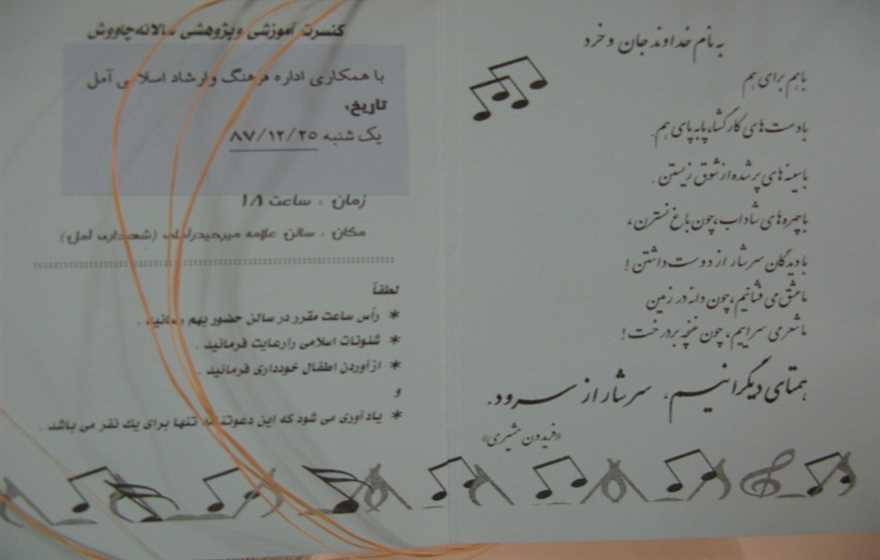 به نام خداوند جان و خرد
با هم برای هم
با دست های کارگشا، پا به پای هم.
با سینه های پر شده از شوق زیستن.
با چهره های شاداب، چون باغ نسترن،
با دیدگان سرشار از دوست داشتن!
ما عشق می فشانیم، چون دانه در زمین
ما شعر می سراییم، چون غنچه بر درخت!
همتای دیگرانیم، سرشار از سرود.
«فریدون مشیری»
کنسرت آموزشی و پژوهشی سالانه چاووش
با همکاری اداره فرهنگ و ارشاد اسلامی آمل
تاریخ:
یک شنبه ۸۷/۱۲/۲۵
زمان : ساعت ۱۸
مکان : سالن علامه میرحیدر آملی (شهرداری آمل)
لطفاً
* رأس ساعت مقرر در سالن حضور بهم رسانید .
* شئونات اسلامی را رعایت فرمائید .
* از آوردن اطفال خودداری فرمائید .
و
* یادآوری می شود که این دعوتنامه تنها برای یک نفر می باشد .